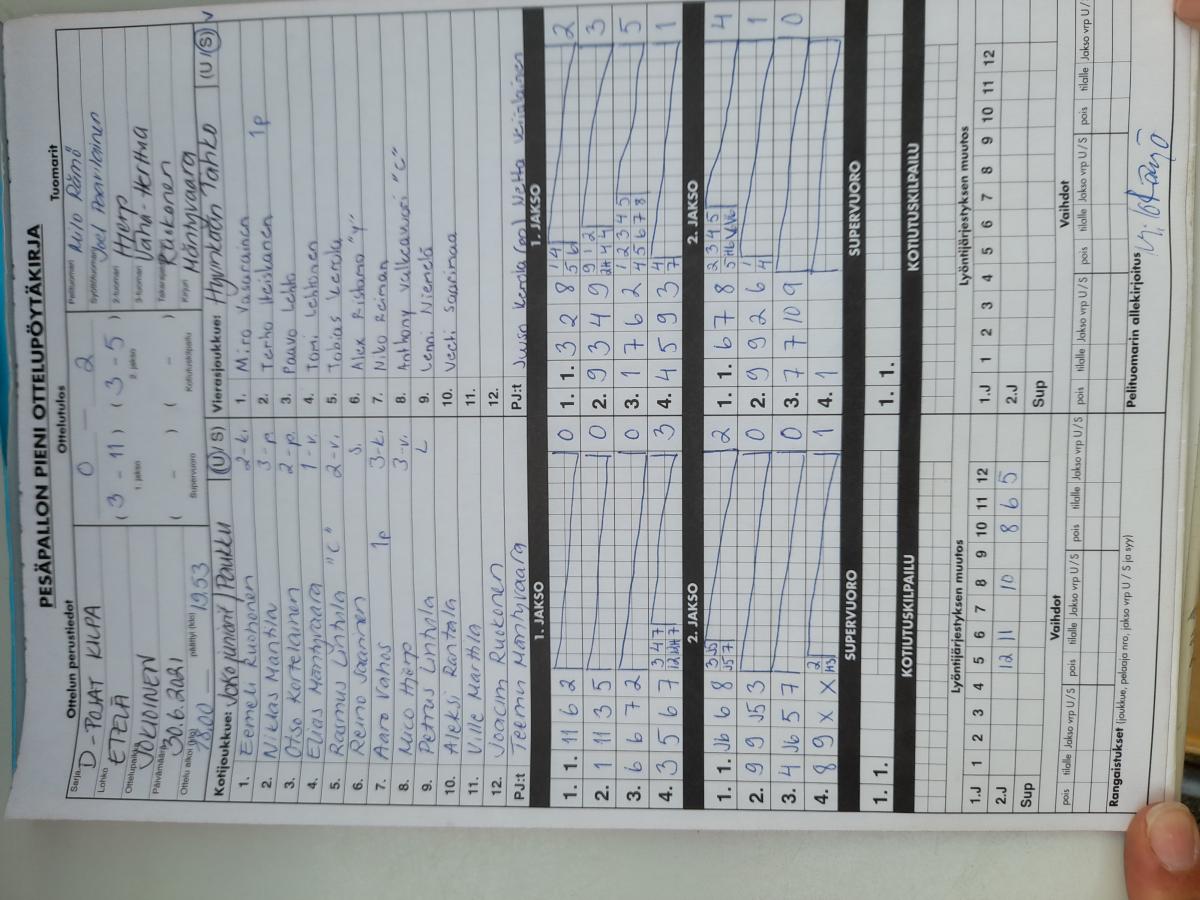 PESÄPALLON PIENI OTTELUPÖYTÄKIRJA
Ottelun perustiedot
Ottelutulos
Tuomarit
Sarja D-POJAT KILPA
Lohko ETELÄ
Ottelupaikka JOKIOINEN
Päivämäärä 30.6.2021
Ottelu alkoi (klo) 18.00 päättyi (klo) 19.53
0 2
( 3 - 11 ) ( 3 - 5 )
1. jakso 2. jakso
( - ) ( - )
Supervuoro Kotiutuskilpailu
Pelituomari Rämö
Syöttötuomari Joel
2-tuomari Hjerp
3-tuomari Vähä-Herttua
Takaraja Ruokonen
Kirjuri Mäntyvaara
Kotijoukkue: Joko juniorit / Paukku (U/S)
1. Eemeli Ruohonen 2-k.
2. Niklas Mantila 3-p.
3. Otso Kortelainen 2-p.
4. Elias Mäntyvaara 1-v.
5. Rasmus Linhola "C" 2-v.
6. Reino Saarinen S.
7. Aaro Vahos 1p 3-k.
8. Nico Hjerp 3-v.
9. Petrus Linhola L
10. Aleksi Rantala
11. Ville Marttila
12. Joacim Ruokonen
PJ:t Teemu Mäntyvaara
Vierasjoukkue: Hyvinkään Tahko (U/S) v
1. Miro Vasarainen
2. Terho Heiskanen 1p
3. Paavo Lehto
4. Tomi Lehtonen
5. Tobias Kerola
6. Alex Ristama "y"
7. Niko Reiman
8. Anthony Valkeavuori "C"
9. Lenni Niemelä
10. Veeti Saarimaa
11.
12.
PJ:t Juuso Kerola
1. JAKSO
1. 1. 11 6 2 0
2. 1 11 3 5 0
3. 6 6 7 2 0
4. 3 5 6 7 3
2. JAKSO
1. 1. J6 6 8 2
2. 9 9 J5 3 0
3. 4 J6 5 7 0
4. 8 9 X X 1
SUPERVUORO
1. 1.
KOTIUTUSKILPAILU
1. JAKSO
1. 1. 3 2 8 2
2. 9 3 4 9 3
3. 1 7 6 2 5
4. 4 5 9 3 1
2. JAKSO
1. 1. 6 7 8 4
2. 9 9 2 6 1
3. 7 7 10 9 0
4. 1
SUPERVUORO
1. 1.
KOTIUTUSKILPAILU
Lyöntijärjestyksen muutos
1.J 1 2 3 4 5 6 7 8 9 10 11 12
2.J 12 11 10 8 6 5
Sup
Vaihdot
pois tilalle Jakso vrp U/S pois tilalle Jakso vrp U/S pois tilalle Jakso vrp U/S
Rangaistukset (joukkue, pelaaja nro, jakso vrp U / S ja syy)
Lyöntijärjestyksen muutos
1.J 1 2 3 4 5 6 7 8 9 10 11 12
2.J
Sup
Vaihdot
pois tilalle Jakso vrp U/S pois tilalle Jakso vrp U/S pois tilalle Jakso vrp U/
Pelituomarin allekirjoitus